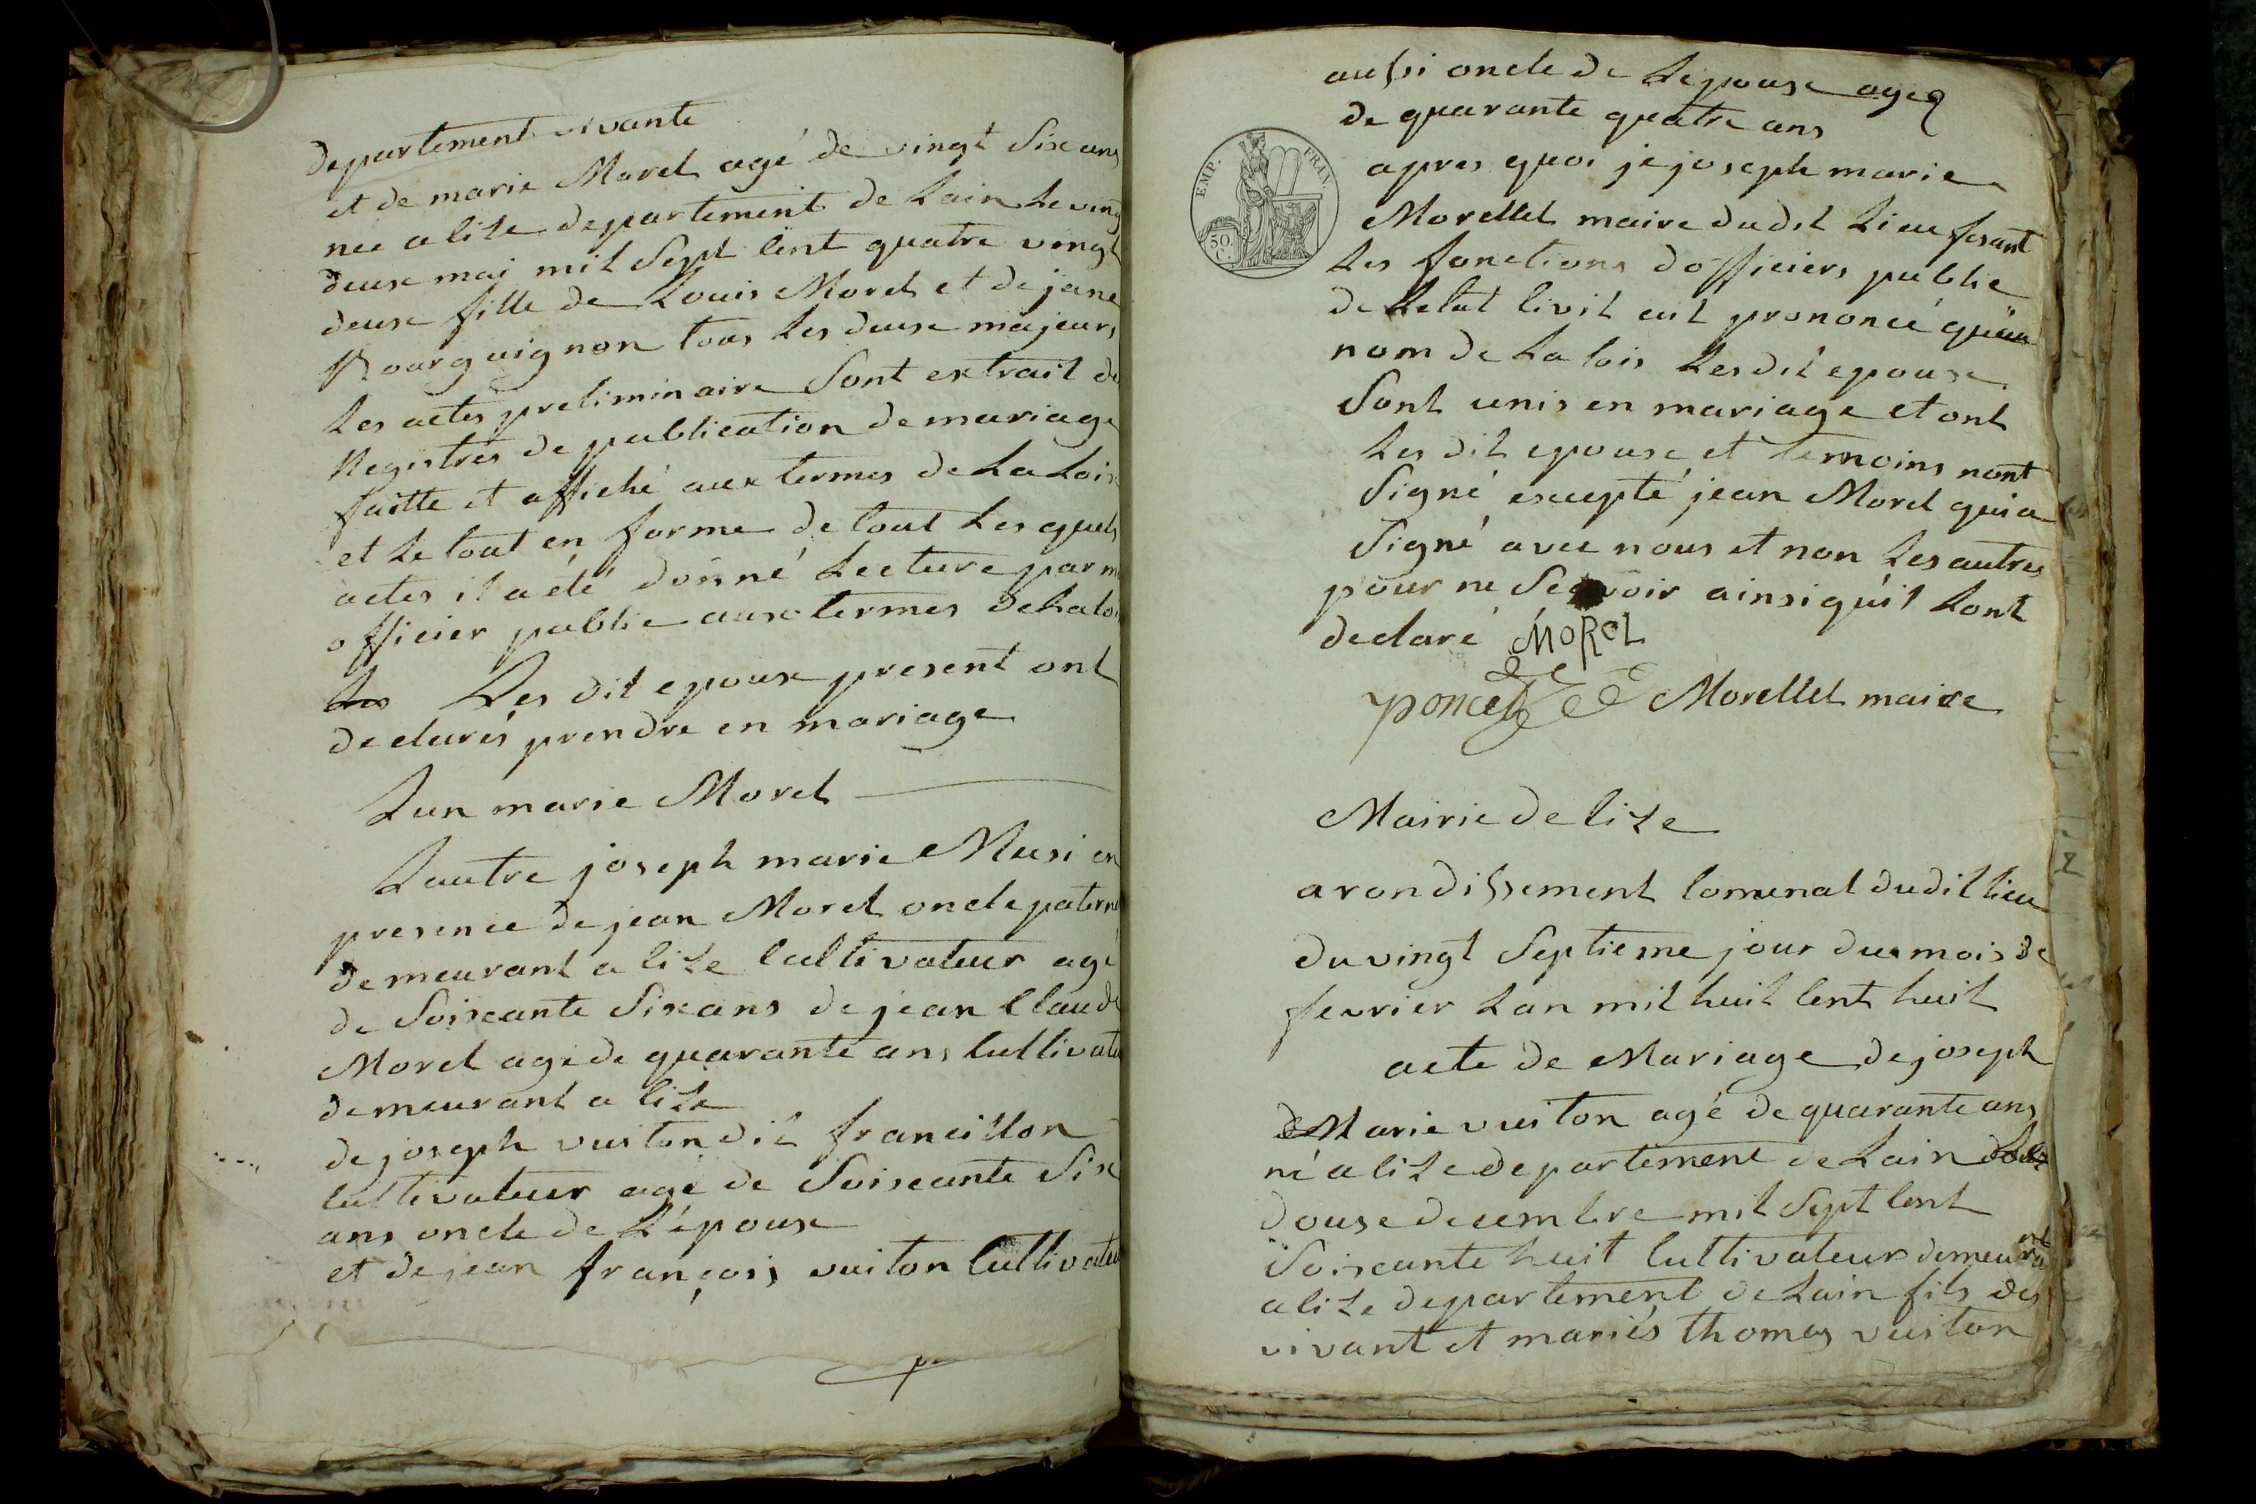 departement vivante
et de marie Morel agé de vingt Six ans
nee a lize departement de Lain Le ving
deux mai mil Sept Cent quatre vingt
deux fille de Louis Morel et de jane
Bourguignon tous Les deux majeurs
Les actes preliminaire Sont extrait de
Registres de publication de mariage
faitte et affiché aux termes de La Lois
et Le tout en forme de tout Les quels
actes il a été donné Lecture par m
officier public aux termes de La loi
Les Les dit epoux present ont
declarés prendre en mariage
Lun marie Morel
Lautre joseph marie Musi en
presence de jean Morel oncle paternel
demeurant a lize Cultivateur agé
de Soixante Six ans de jean Claude
Morel agé de quarante ans Cultivateu
demeurant a lize
de joseph vuiton dit francillon
Cultivateur agé de Soixante Six
ans oncle de L'époux
et de jean françois vuiton Cultivateu
aussi oncle de Lepouse agé
de quarante quatre ans
EMP. FRAN.
50. C.
apres quoi je joseph marie
Morellet maire dudit Lieu fesant
Les fonctions dofficiers public
de Letat Civil ait prononcé quau
nom de La lois Lesdit epouse
Sont unis en mariage et ont
Les dit epouse et temoins nont
Signé excepté jean Morel qui a
Signé avec nous et non Les autres
pour ne Scavoir ainsi qu'il Lont
declaré MORel
poncet Morellet maire
Mairie de lize
arondissement Comunal dudit lieu
du vingt Septieme jour du mois de
fevrier Lan mil huit Cent huit
acte de Mariage de joseph
Marie vuiton agé de quarante ans
né a lize departement de Lain
douse decembre mil Sept Cent
Soixante huit Cultivateur demeurant
a lize departement de Lain fils des
vivant et mariés thomas vuiton